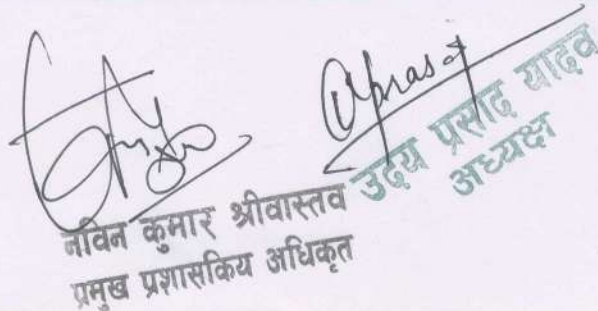 नविन कुमार श्रीवास्तव
प्रमुख प्रशासकिय अधिकृत
उदय प्रसाद यादव
अध्यक्ष